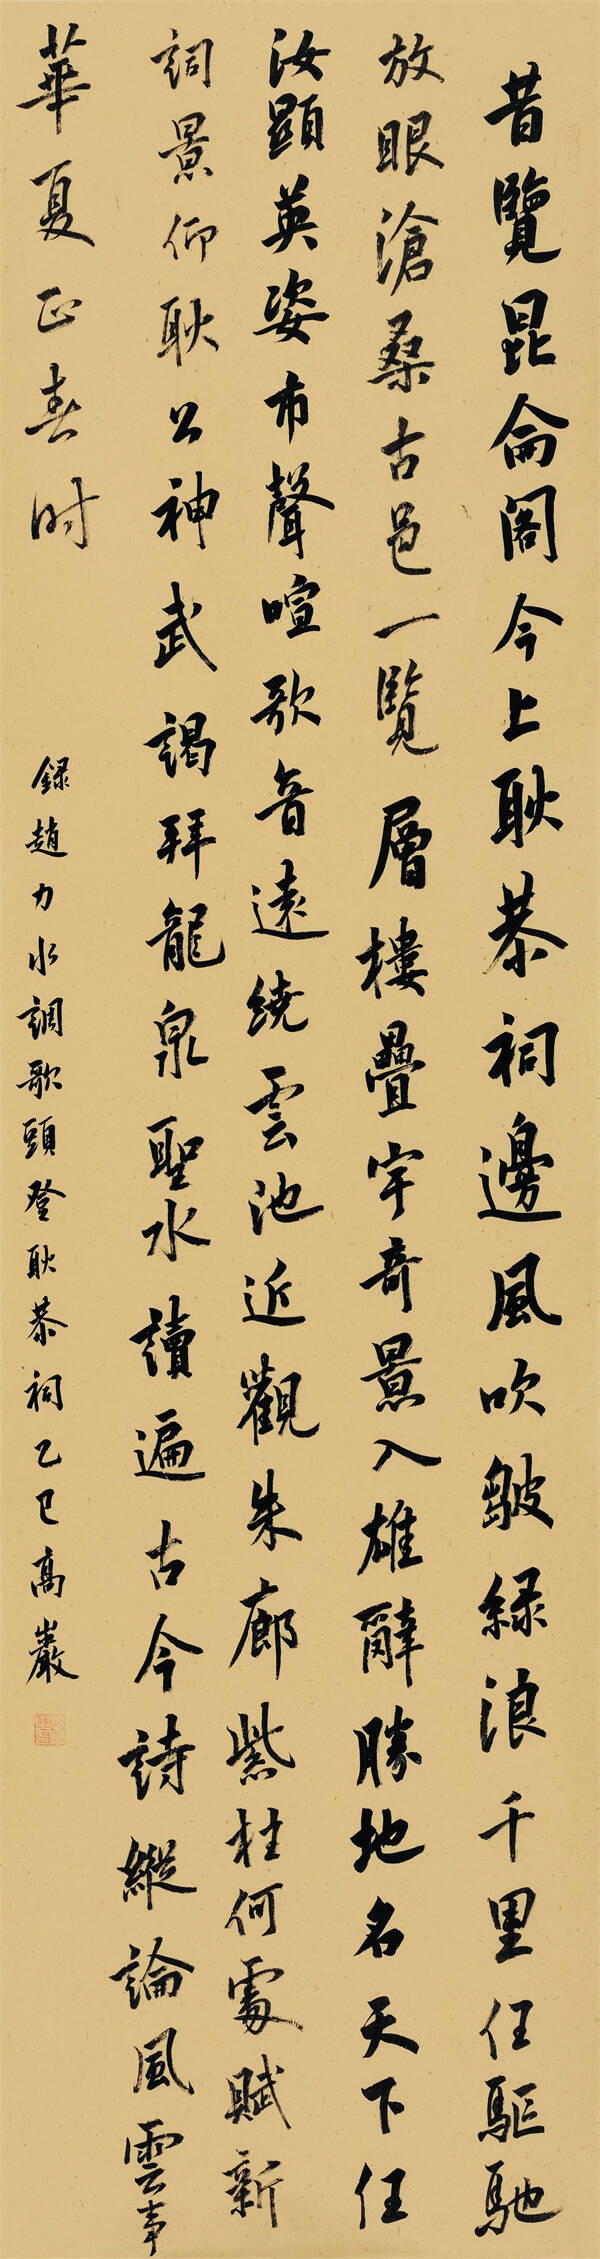 昔覽昆侖阁今上耿恭祠邊風吹皺緑浪千里任驅馳
放眼滄桑古邑一覽層樓疊宇奇景入雄辭勝地名天下任
汝顯英姿市聲喧歌音遠繞雲池近觀朱廊紫柱何處賦新
詞景仰耿公神武謁拜龍泉聖水讀遍古今詩縱論風雲事
華夏正春时
録趙力水調歌頭登耿恭祠乙巳高巖